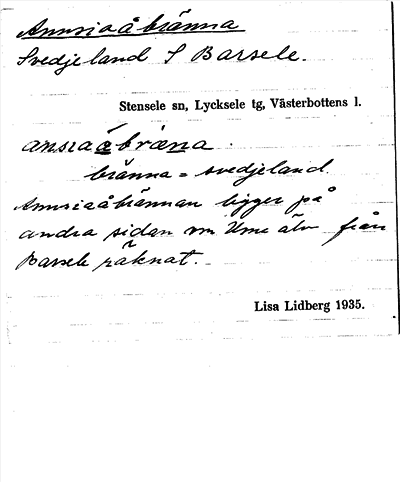 Annsiaåbränna
Svedjeland S Barsele.
Stensele sn, Lycksele tg, Västerbottens l.
bränna = svedjeland.
Annsiaåbrännan ligger på
andra sidan om Ume älv från
Barsele räknat.
Lisa Lidberg 1935.